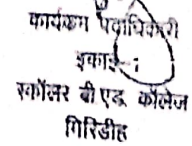 कार्यक्रम पदाधिकारी
इकाई-1
स्कॉलर बी एड कॉलेज
गिरिडीह